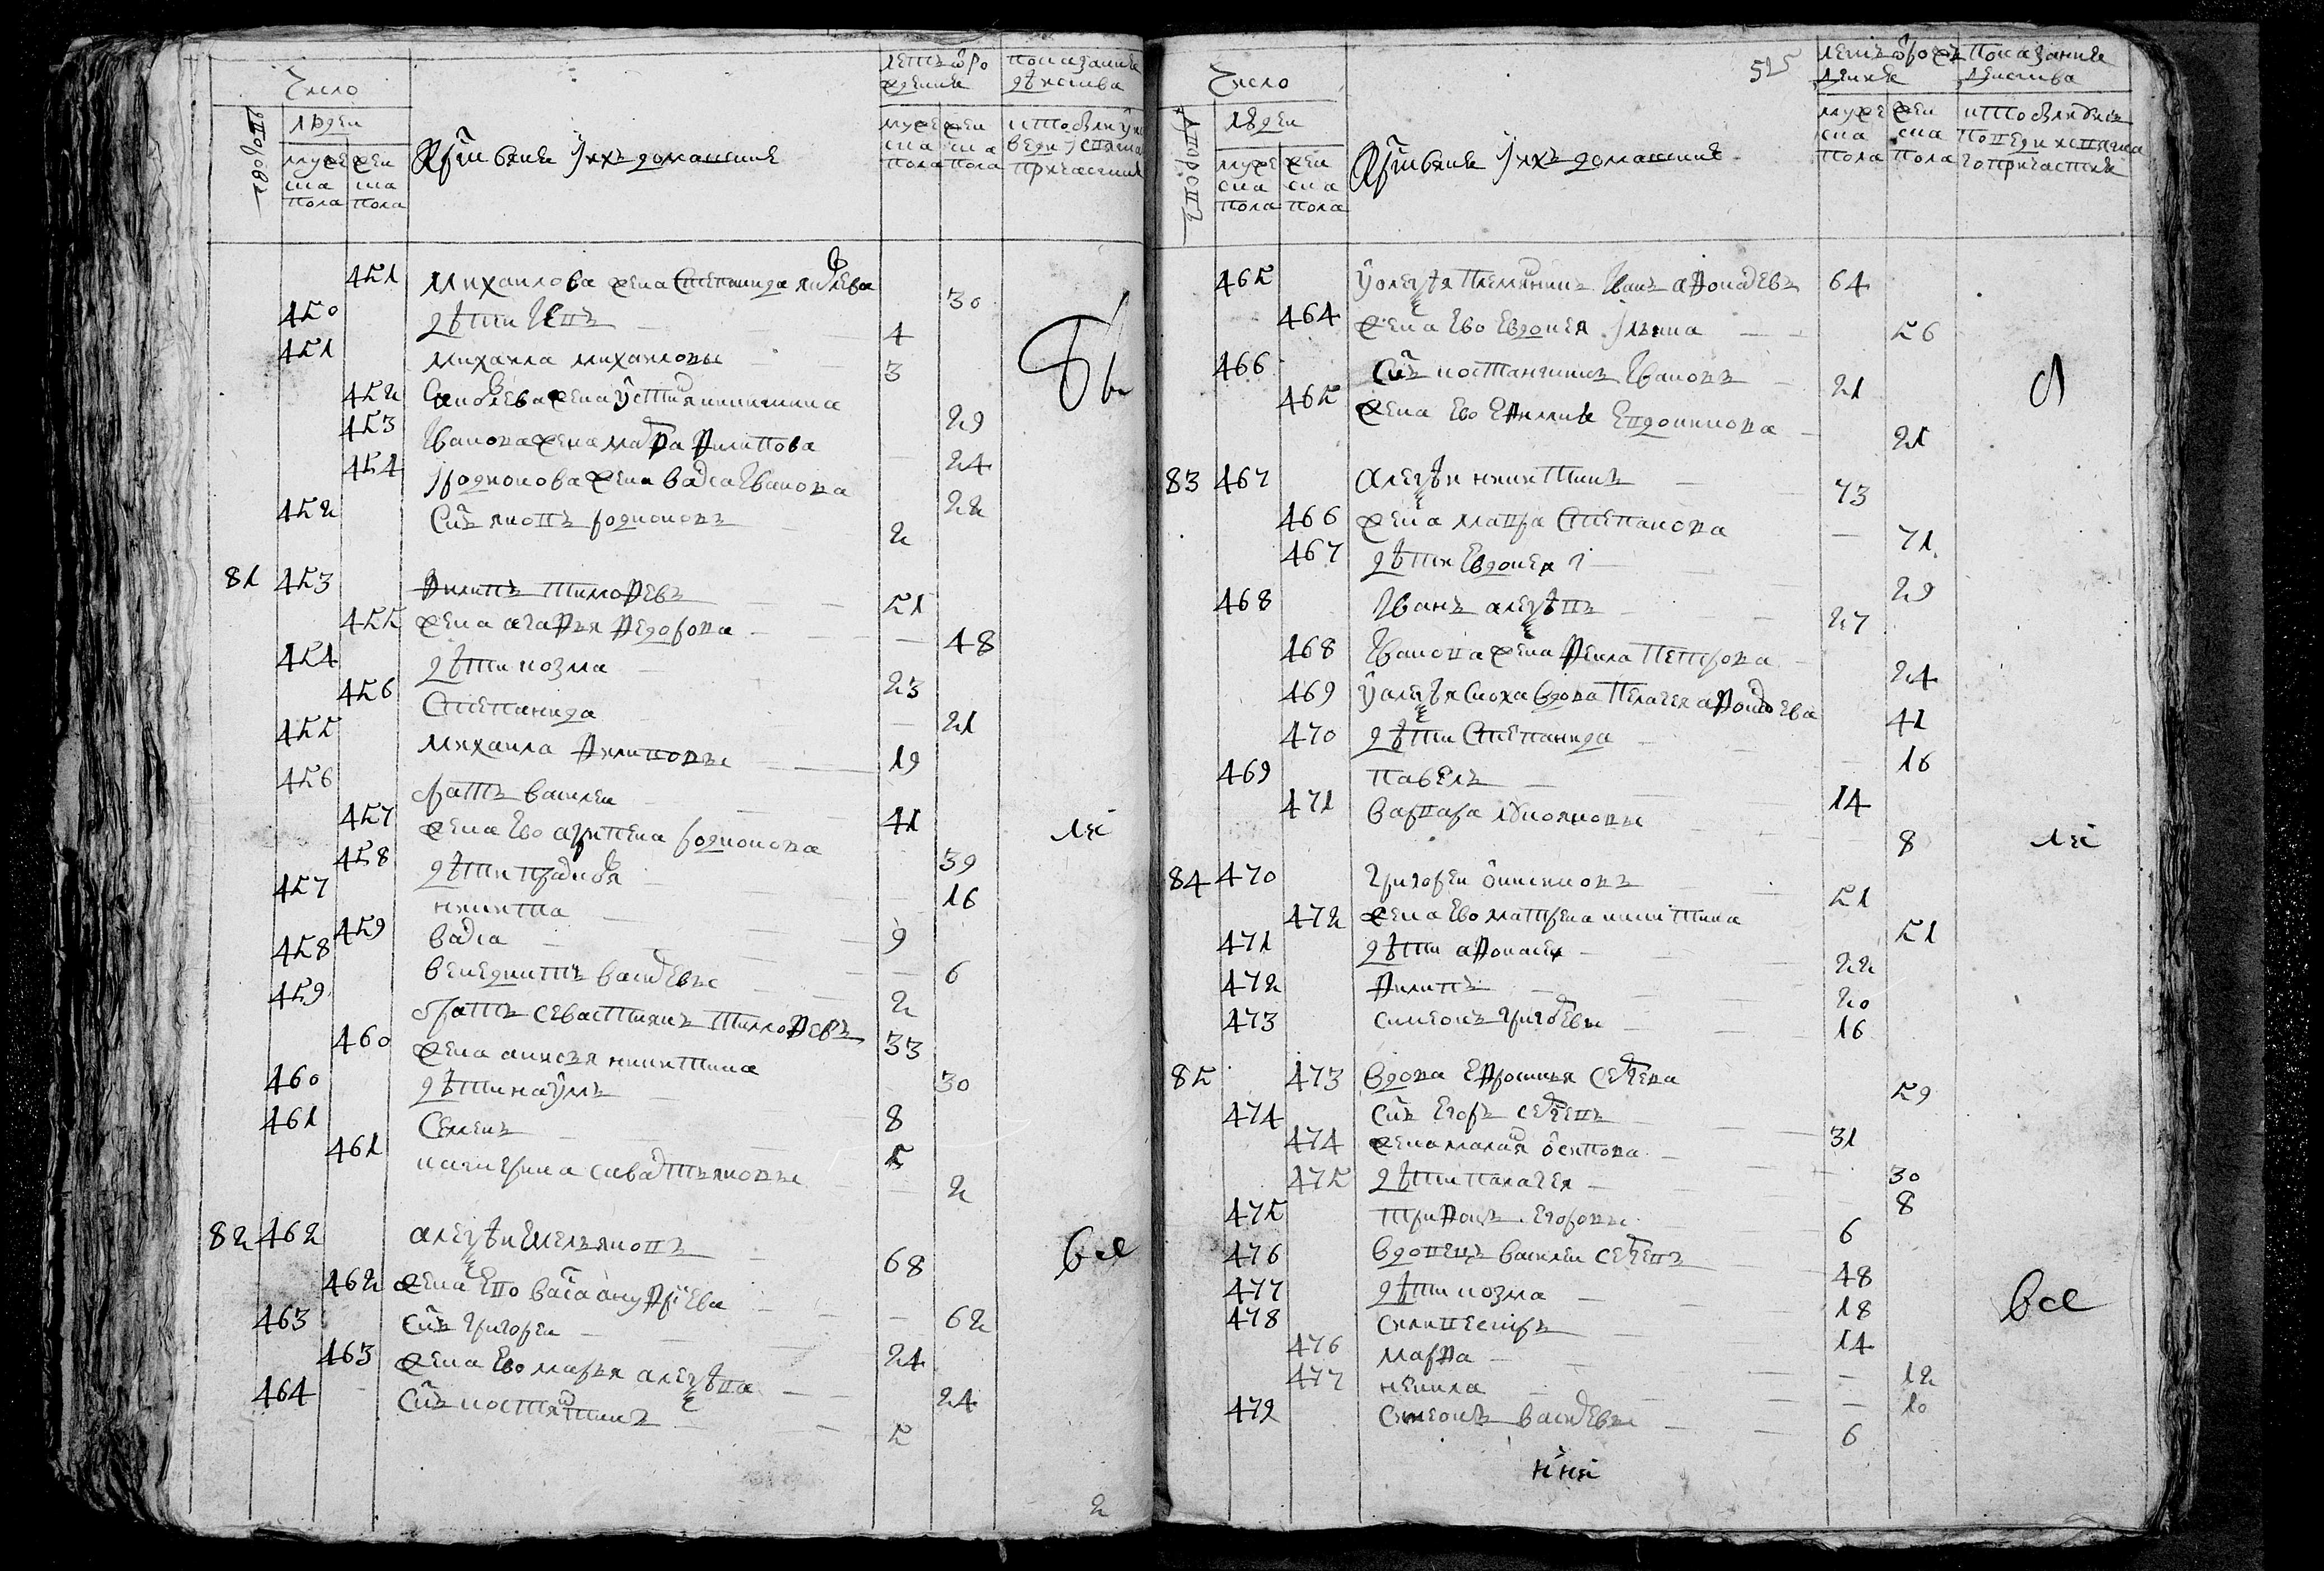 Число
дворовъ
людеи
мужеска пола
женска пола
Крестьяне и ихъ домашние
летъ от рождения
мужеска пола
женска пола
показание действа
кто былъ у исповеди и святаго причастия
451 Михаилова жена Степанида Яковлева 30
450 дѣти Иевъ 4
451 Михаила Михаиловы 3
452 Яковлева жена Устиния Никитина 29
453 Иванова жена Марфа Филипова 24
454 Иродионова жена Васса Иванова 22
452 Сынъ Яковъ Родионовъ 2
81 453 Филипъ Тимофеевъ 51
455 жена Агафия Федорова 48
454 дѣти Козма 23
456 Степанида 21
455 Михаила Филиповы 19
456 братъ Василеи 41
457 жена ево Агрипена Родионова 39
458 дѣти Празковья 16
457 Никита 9
459 Васса 6
458 Венедиктъ Васильевы 2
459 братъ Севастиянъ Тимофеевъ 33
460 жена Анисья Никитина 30
460 дѣти Наумъ 8
461 Семенъ 5
461 Катерина Савастьяновы 2
82 462 Алексѣи Емельяновъ 68
462 жена ево Васса Ануфриева 62
463 Сынъ Григореи 24
463 жена ево Марья Алексѣева 24
464 Сынъ Костянтинъ 5
все
2
525
Число
дворовъ
людеи
мужеска пола
женска пола
Крестьяне и ихъ домашние
летъ от рождения
мужеска пола
женска пола
показание действа
465 У Алексѣя племянникъ Иванъ Афонасьевъ 64
464 жена ево Евдокея Ильина 56
466 Сынъ Костянтинъ Ивановъ 21
465 жена ево Ефимия Евдокимова 21
83 467 Алексѣи Никитинъ 73
466 жена Мавра Степанова 71
467 дѣти Евдокея 29
468 Иванъ Алексѣевъ 27
468 Иванова жена Фекла Петрова 24
469 У Алексѣя сноха вдова Пелагея Афонасьева 41
470 дѣти Степанида 16
469 Павелъ 14
471 Варвара Лукояновы 8
84 470 Григореи Онисимовъ 51
472 жена ево Матрена Никитина 51
471 дѣти Афонасеи 22
472 Филипъ 20
473 Симеонъ Григорьевы 16
85 473 вдова Ефросинья Сергеева 59
474 Сынъ Егоръ Сергеевъ 31
474 жена Маланья Осипова 30
475 дѣти Палагея 8
475 Трифонъ Егоровы 6
476 вдовецъ Василеи Сергеевъ 48
477 дѣти Козма 18
478 Силивестръ 14
476 Марфа 12
477 Ненила 10
479 Симеонъ Васильевы 6
все